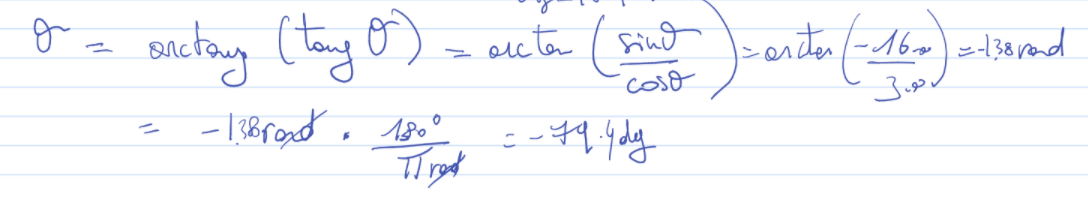 θ = arctang (tang θ) = arctan (sinθ/cosθ) = arctan (-16.00/3.00) = -1.38 rad
= -1.38 rad · 180°/π rad = -79.4 deg